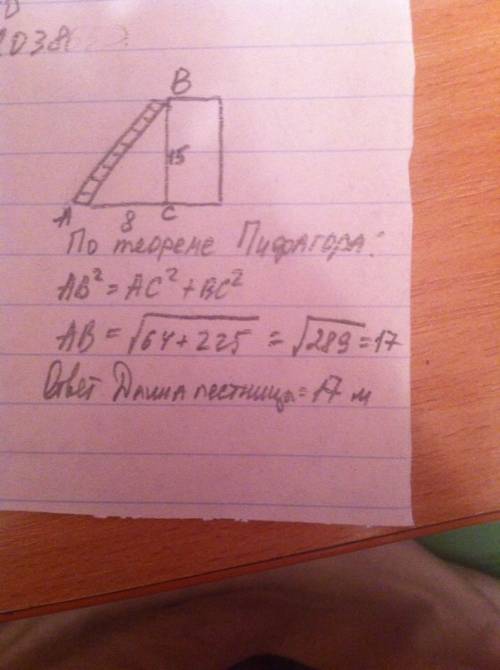 1038
B
15
A 8 C
По теореме Пифагора:
AB² = AC² + BC²
AB = √64+225 = √289 = 17
Ответ Длина лестницы = 17 м